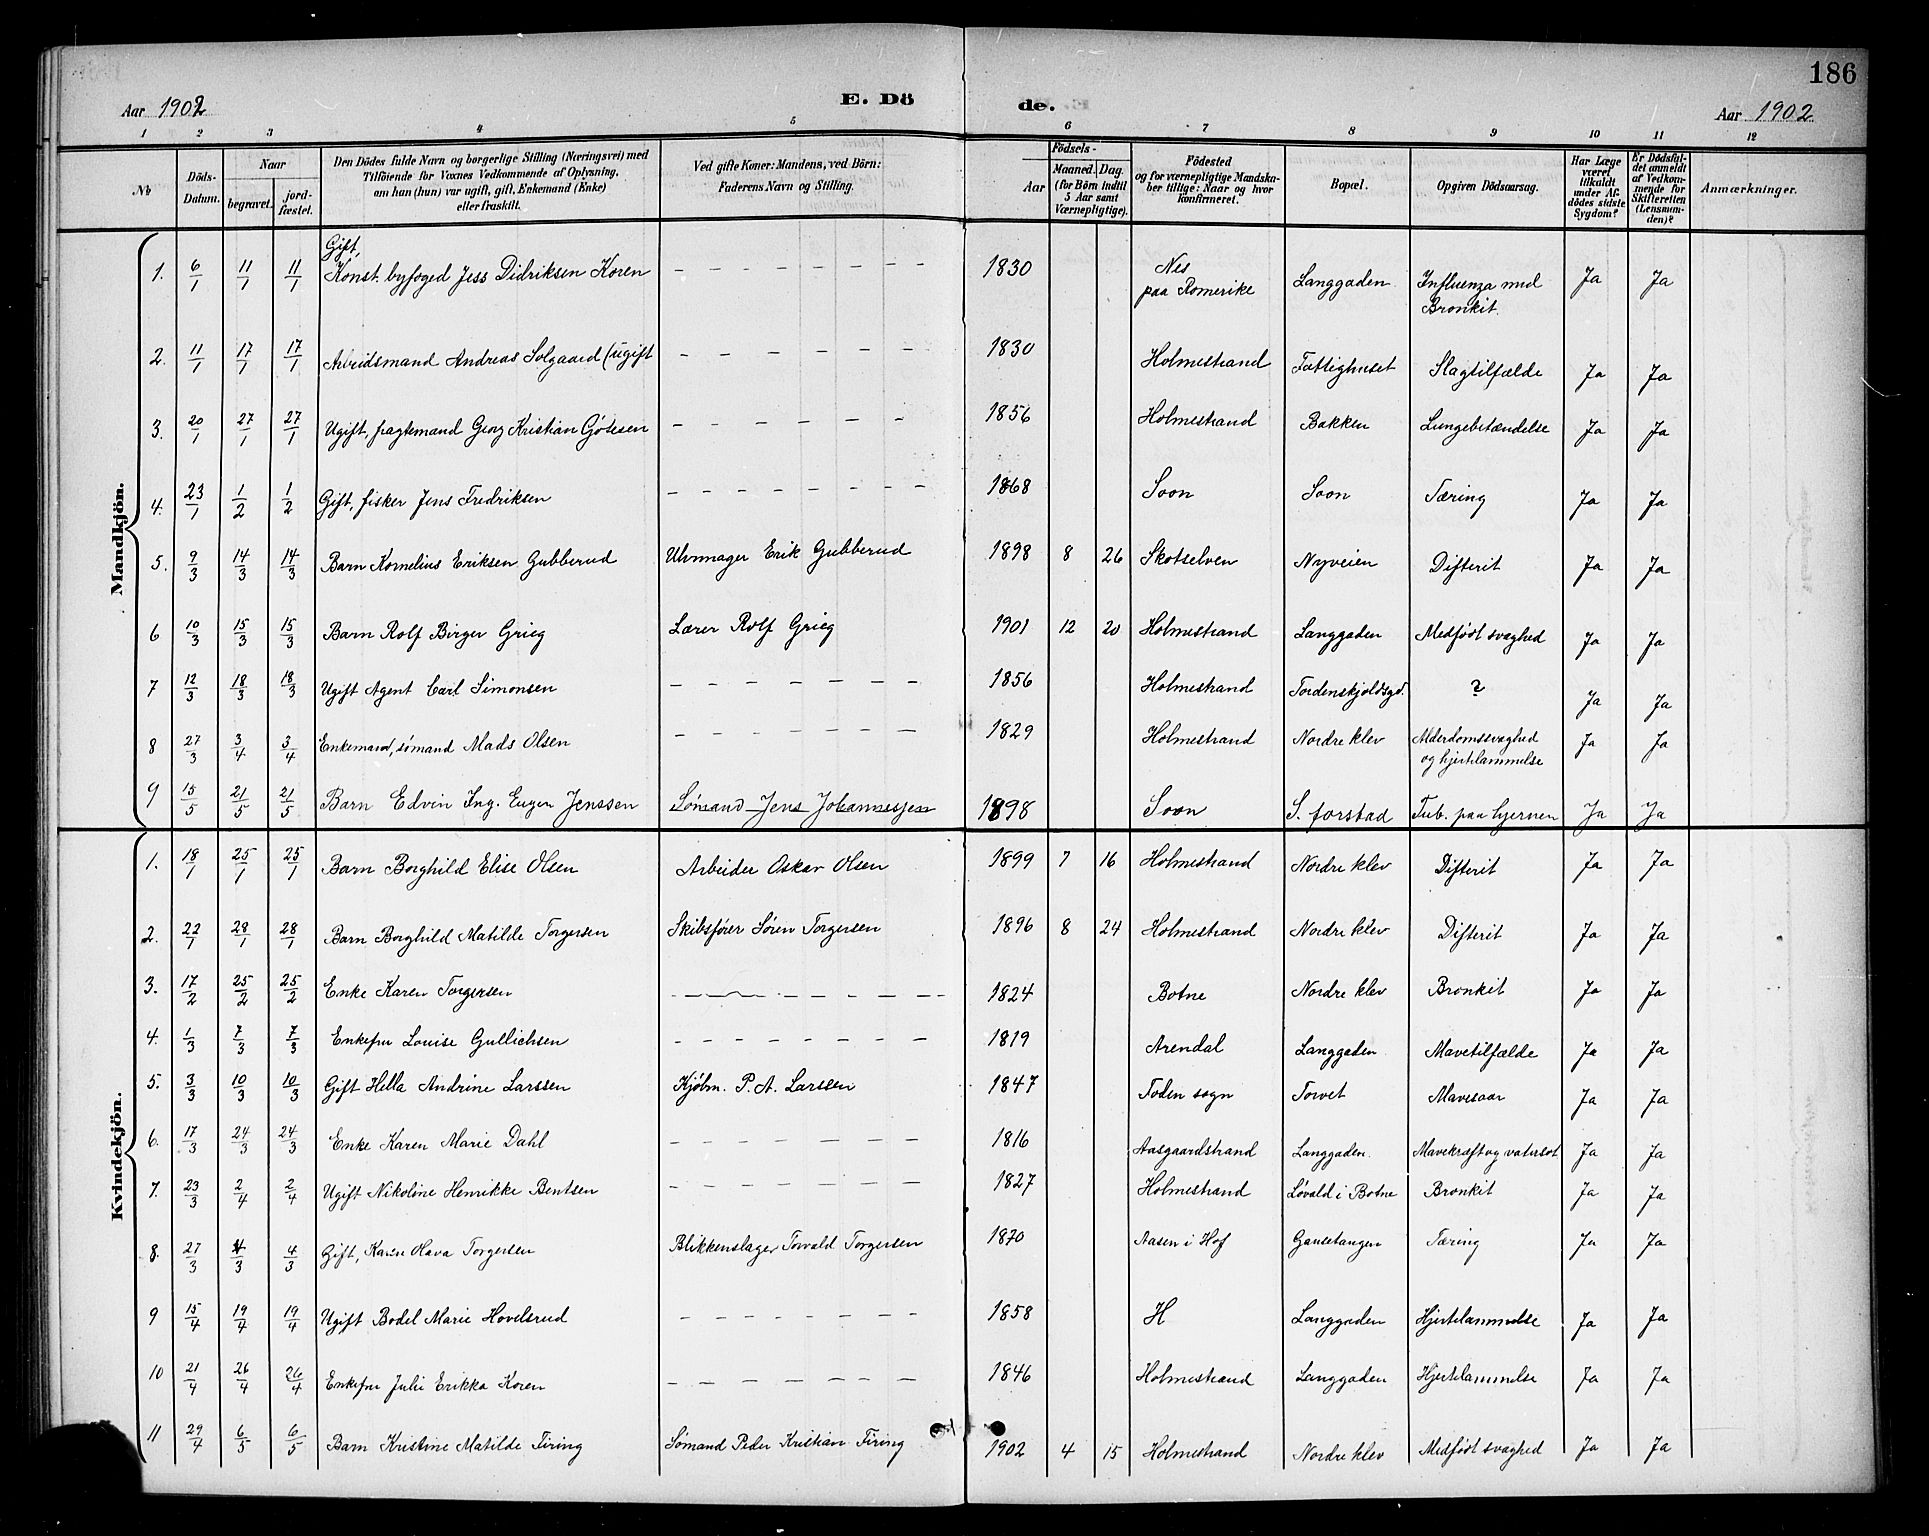 186
Aar 1902 E. Dö de. Aar 1902
1 2 3 4 5 6 7 8 9 10 11 12
No
Döds-Datum.
Naar
begravet. jordfæstet.
Den Dödes fulde Navn og borgerlige Stilling (Næringsvei) med Tilföiende for Voxnes Vedkommende af Oplysning, om han (hun) var ugift, gift, Enkemand (Enke) eller fraskilt.
Ved gifte Koner: Mandens, ved Börn: Faderens Navn og Stilling.
Födsels-
Aar Maaned. Dag. (for Börn indtil 5 Aar samt Værnepligtige).
Födested og for værnepligtige Mandskaber tillige: Naar og hvor konfirmeret.
Bopæl.
Opgiven Dödsaarsag.
Har Læge været tilkaldt under Afdödes sidste Sygdom?
Er Dödsfaldet anmeldt af Vedkommende for Skifteretten (Lensmanden)?
Anmærkninger.
Mandkjön.
1. 6/1 11/1 11/1 Gift, Konst. byfoged Jess Didriksen Koren – – – 1830 Nes paa Romerike Langgaden Influenza med Bronkit. Ja Ja
2. 11/1 17/1 17/1 Arbeidsmand Andreas Solgaard (ugift – – – 1830 Holmestrand Fattighuset Slagtilfælde Ja Ja
3. 20/1 27/1 27/1 Ugift, fragtemand Georg Kristian Gjøtesen – – – 1856 Holmestrand Bakken Lungebetændelse Ja Ja
4. 23/1 1/2 1/2 Gift, fisker Jens Fredriksen – – – 1868 Soon Soon Tæring Ja Ja
5. 9/3 14/3 14/3 Barn Kornelius Eriksen Gubberud Uhrmager Erik Gubberud 1898 8 26 Skotselven Nyveien Difterit Ja Ja
6 10/3 15/3 15/3 Barn Rolf Birger Grieg Lærer Rolf Grieg 1901 12 20 Holmestrand Langgaden Medfødt svaghed Ja Ja
7 12/3 18/3 18/3 Ugift Agent Carl Simonsen – – – 1856 Holmestrand Tordenskjoldsgd. ? Ja Ja
8 27/3 3/4 3/4 Enkemand, sømand Mads Olsen – – – 1829 Holmestrand Nordre klev Alderdomssvaghed og hjertelammelse Ja Ja
9 15/5 21/5 21/5 Barn Edvin Ing. Eugen Jenssen Sømand Jens Johannessen 1898 Soon S. forstad Tub. paa hjernen Ja Ja
Kvindekjön.
1. 18/1 25/1 25/1 Barn Borghild Elise Olsen Arbeider Oskar Olsen 1899 7 16 Holmestrand Nordre klev Difterit Ja Ja
2. 22/1 28/1 28/1 Barn Borghild Matilde Torgersen Skibsfører Søren Torgersen 1896 8 24 Holmestrand Nordre klev Difterit Ja Ja
3. 17/2 25/2 25/2 Enke Karen Torgersen – – – 1824 Botne Nordre klev Bronkit Ja Ja
4. 1/3 7/3 7/3 Enkefru Louise Gullichsen – – – 1819 Arendal Langgaden Mavetilfælde Ja Ja
5. 3/3 10/3 10/3 Gift Hella Andrine Larssen Kjøbm. P. A. Larssen 1847 Foden sogn Torvet Mavesaar Ja Ja
6. 17/3 24/3 24/3 Enke Karen Marie Dahl – – – 1816 Aasgaardstrand Langgaden. Mavekræft og vatersot Ja Ja
7. 23/3 2/4 2/4 Ugift Nikoline Henrikke Bentsen – – – 1827 Holmestrand Løvald i Botne Bronkit Ja Ja
8. 27/3 4/3 4/3 Gift, Karen Olava Torgersen Blikkenslager Torvald Torgersen 1870 Aasen i Hof Gausetangen Tæring Ja Ja
9 15/4 19/4 19/4 Ugift Bodel Marie Hovelsrud – – – 1858 H Langgaden Hjertelammelse Ja Ja
10 21/4 26/4 26/4 Enkefru Julie Erikka Koren – – – 1846 Holmestrand Langgaden Hjertelammelse Ja Ja
11 29/4 6/5 6/5 Barn Kristine Matilde Firing Sømand Peder Kristian Firing 1902 4 15 Holmestrand Nordre klev Medfødt svaghed Ja Ja